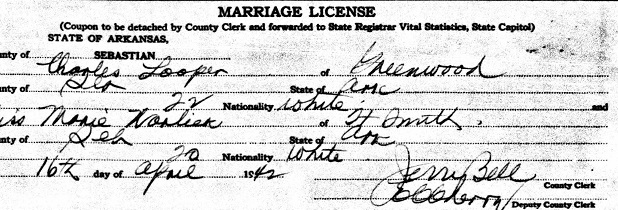 MARRIAGE LICENSE
(Coupon to be detached by County Clerk and forwarded to State Registrar Vital Statistics, State Capitol)
STATE OF ARKANSAS,
unty of SEBASTIAN
Charles Looper of Greenwood
unty of Seb State of Ark
22 Nationality White and
iss Marie of Ft Smith,
unty of Seb State of Ark
20 Nationality White
16th day of April 1942
Jerry Bell
County Clerk
Deputy County Clerk